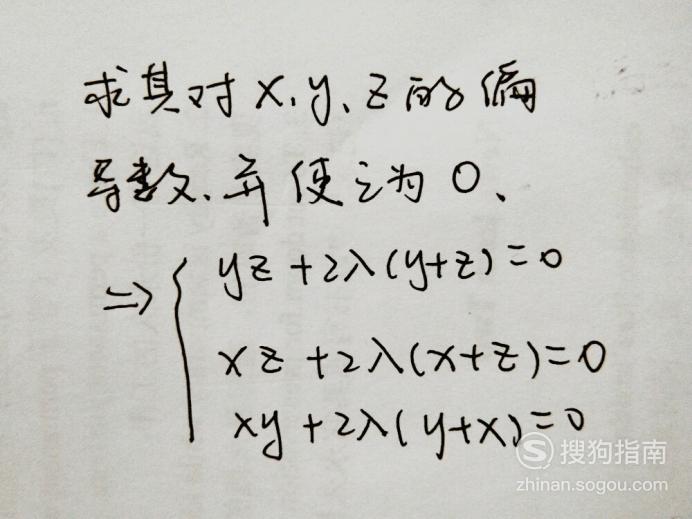 求其对x、y、z的偏
导数、并使之为0、
⇒ { yz+2λ(y+z)=0
xz+2λ(x+z)=0
xy+2λ(y+x)=0
S 搜狗指南
zhinan.sogou.com